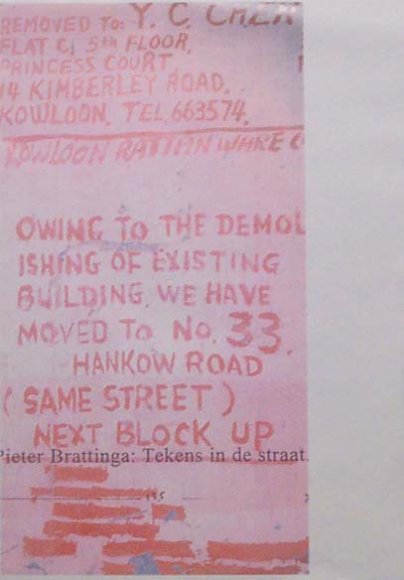 REMOVED TO: Y. C. CHEN
FLAT C, 5TH FLOOR,
PRINCESS COURT,
14 KIMBERLEY ROAD,
KOWLOON, TEL, 663574,
KOWLOON RATTAN WARE C
OWING TO THE DEMOL
ISHING OF EXISTING
BUILDING, WE HAVE
MOVED TO NO. 33,
HANKOW ROAD
( SAME STREET )
NEXT BLOCK UP
Pieter Brattinga: Tekens in de straat.